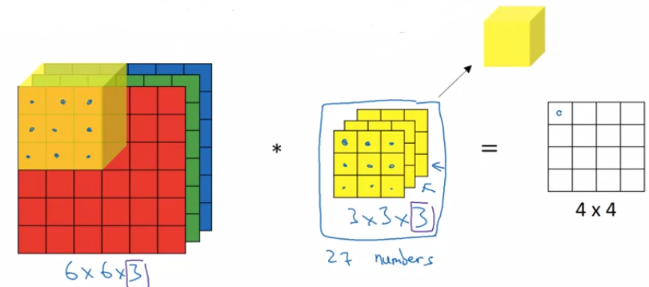 *
=
6 x 6 x 3
3 x 3 x 3
27 numbers
4 x 4